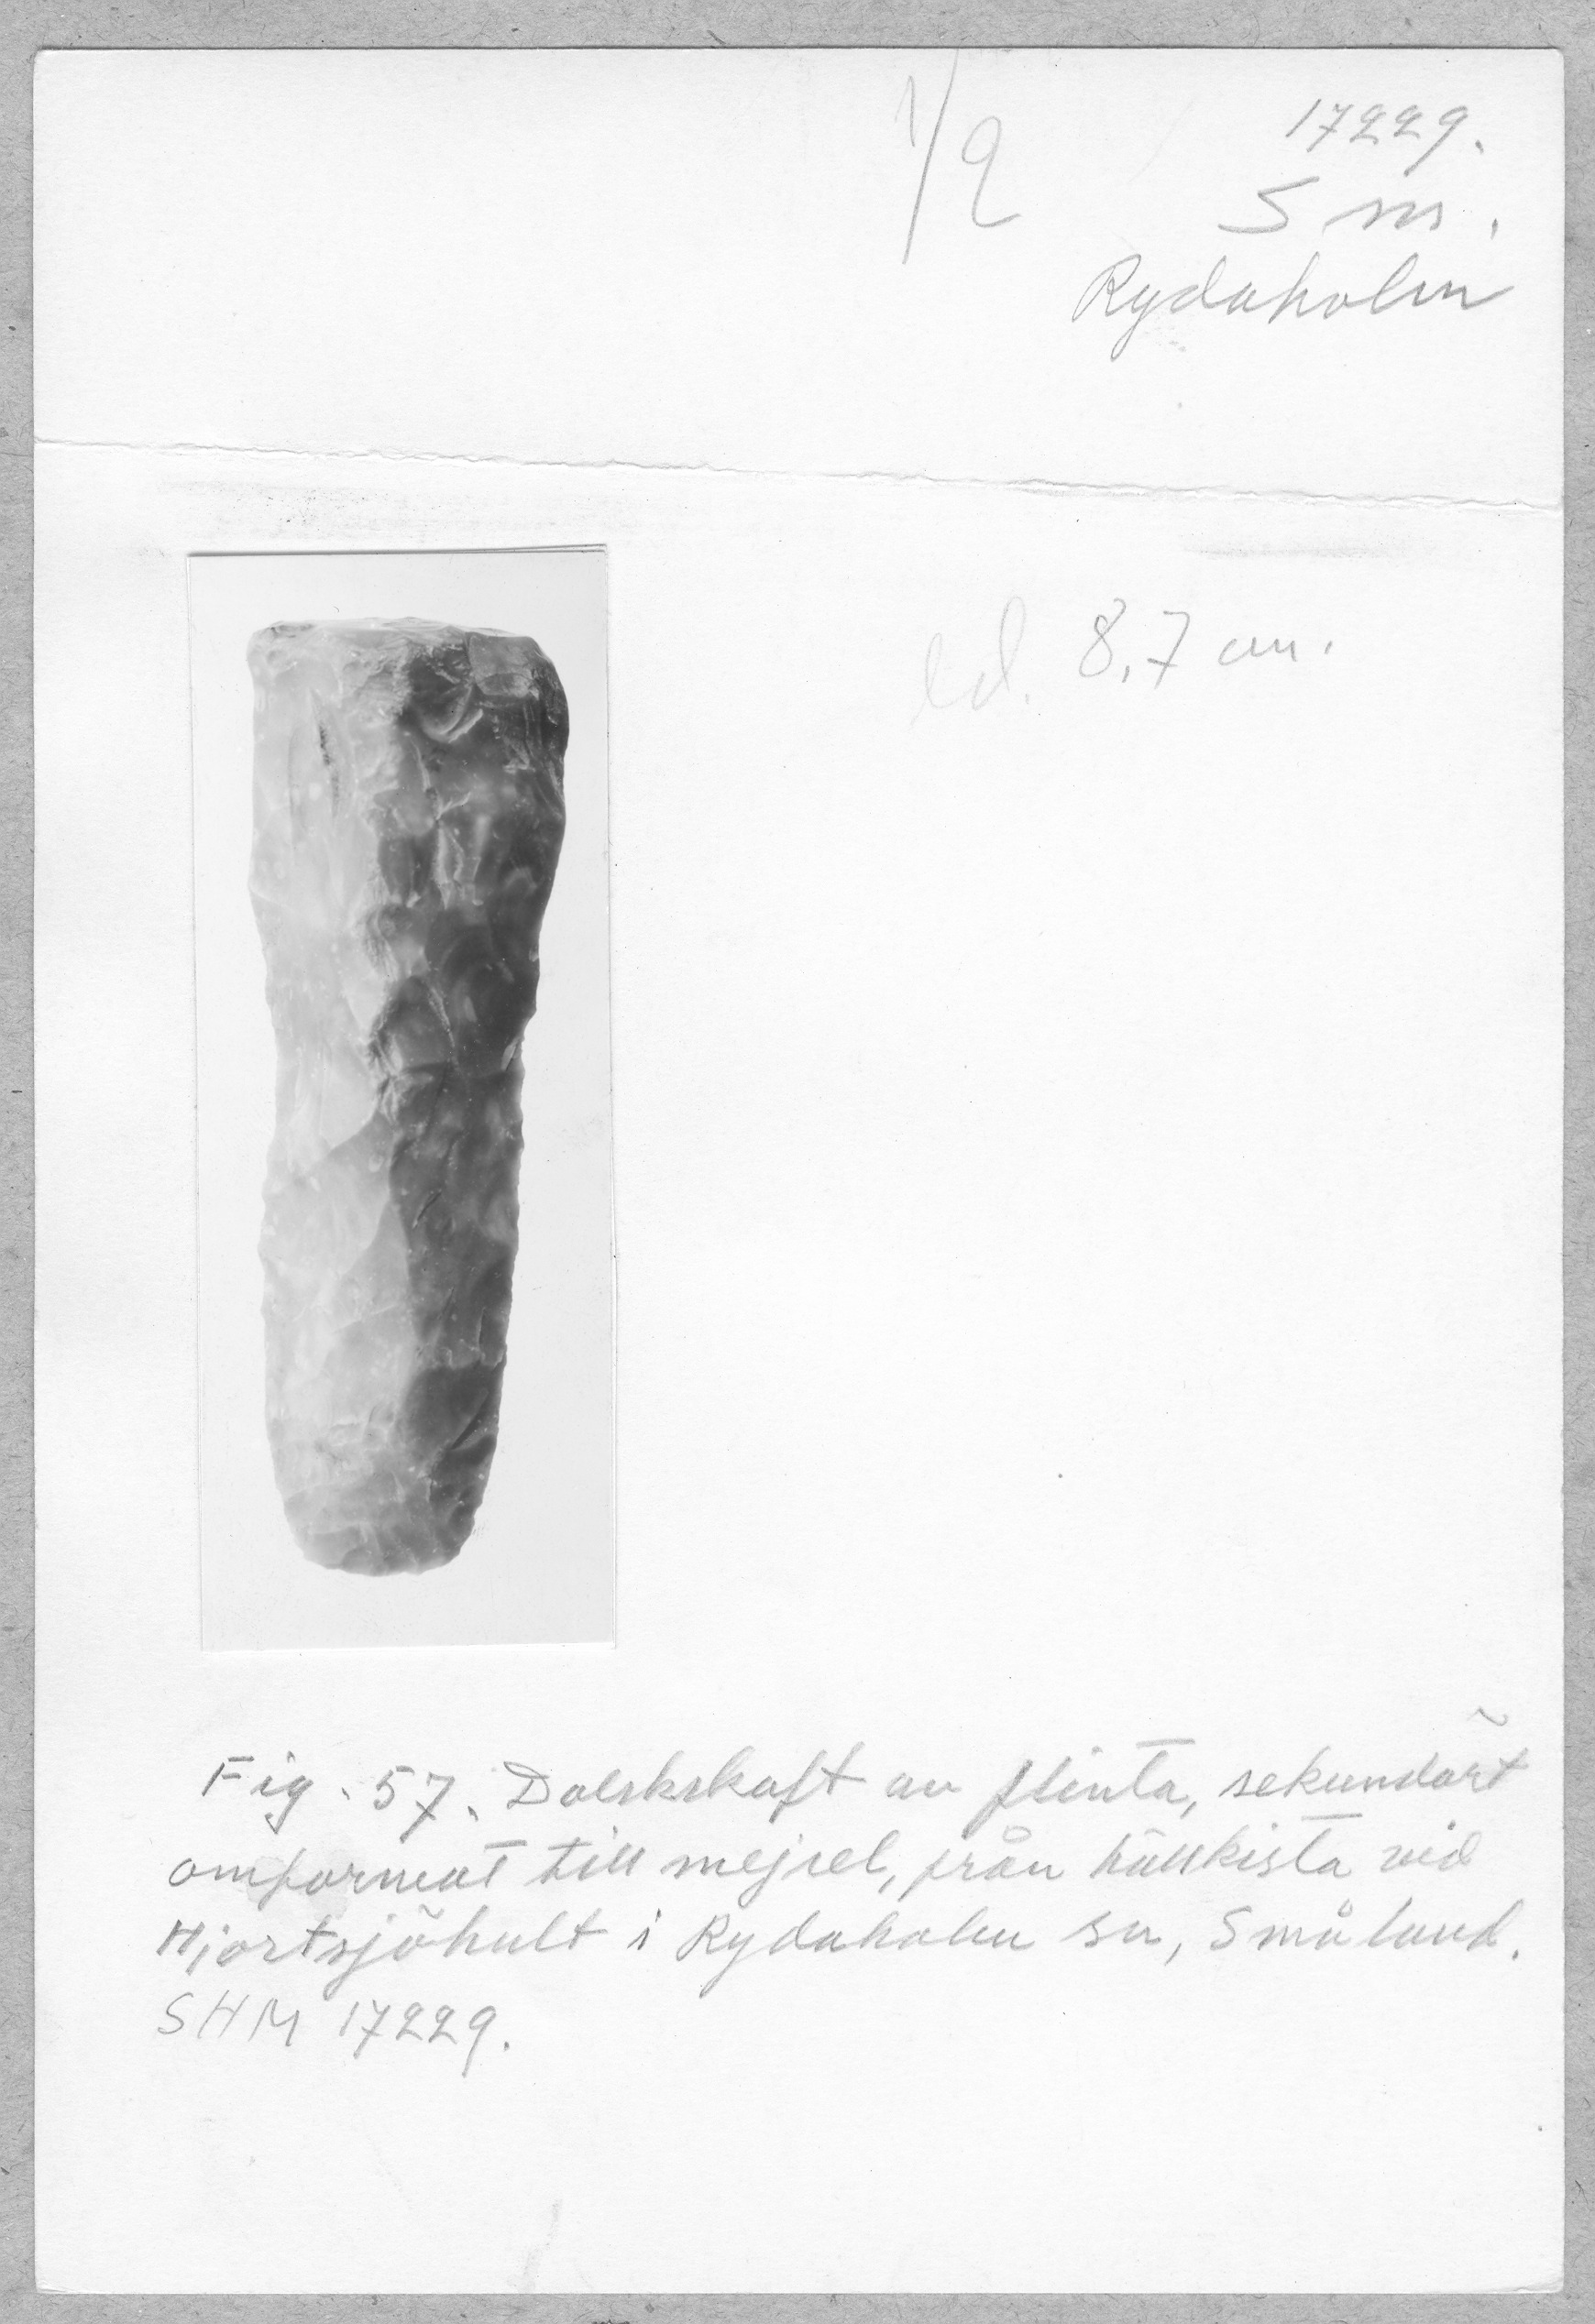 1/2
17229.
Sm.
Rydaholm
8,7 cm.
Fig. 57. Dolkskaft av flinta, sekundärt
omformat till mejsel, från hällkista vid
Hjortsjöhult i Rydaholm sn, Småland.
SHM 17229.